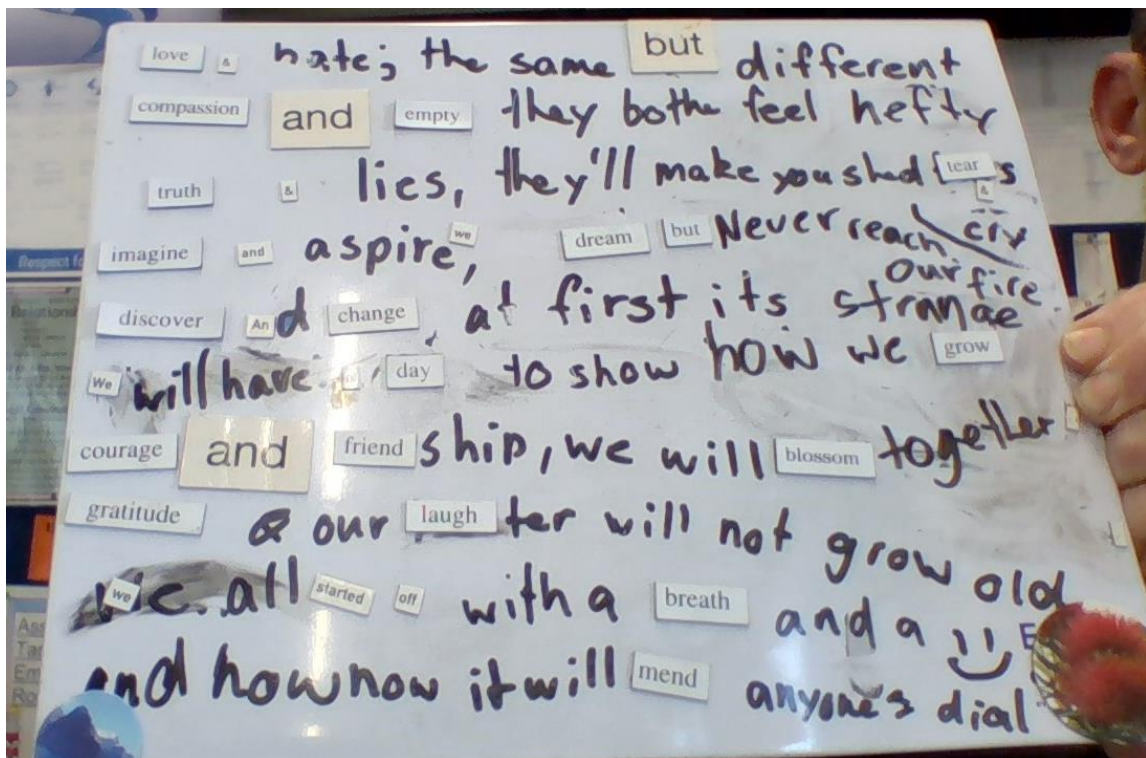 love & hate; the same but different
compassion and empty they bothe feel hefty
truth & lies, they'll make you shed tears
& cry
imagine and aspire, we dream but Never reach our fire
discover And change, at first its strange
We will have day to show how we grow
courage and friend ship, we will blossom together
gratitude & our laugh ter will not grow old
we all started off with a breath and a
and how now it will mend anyone's dial
Respect fo
Relations